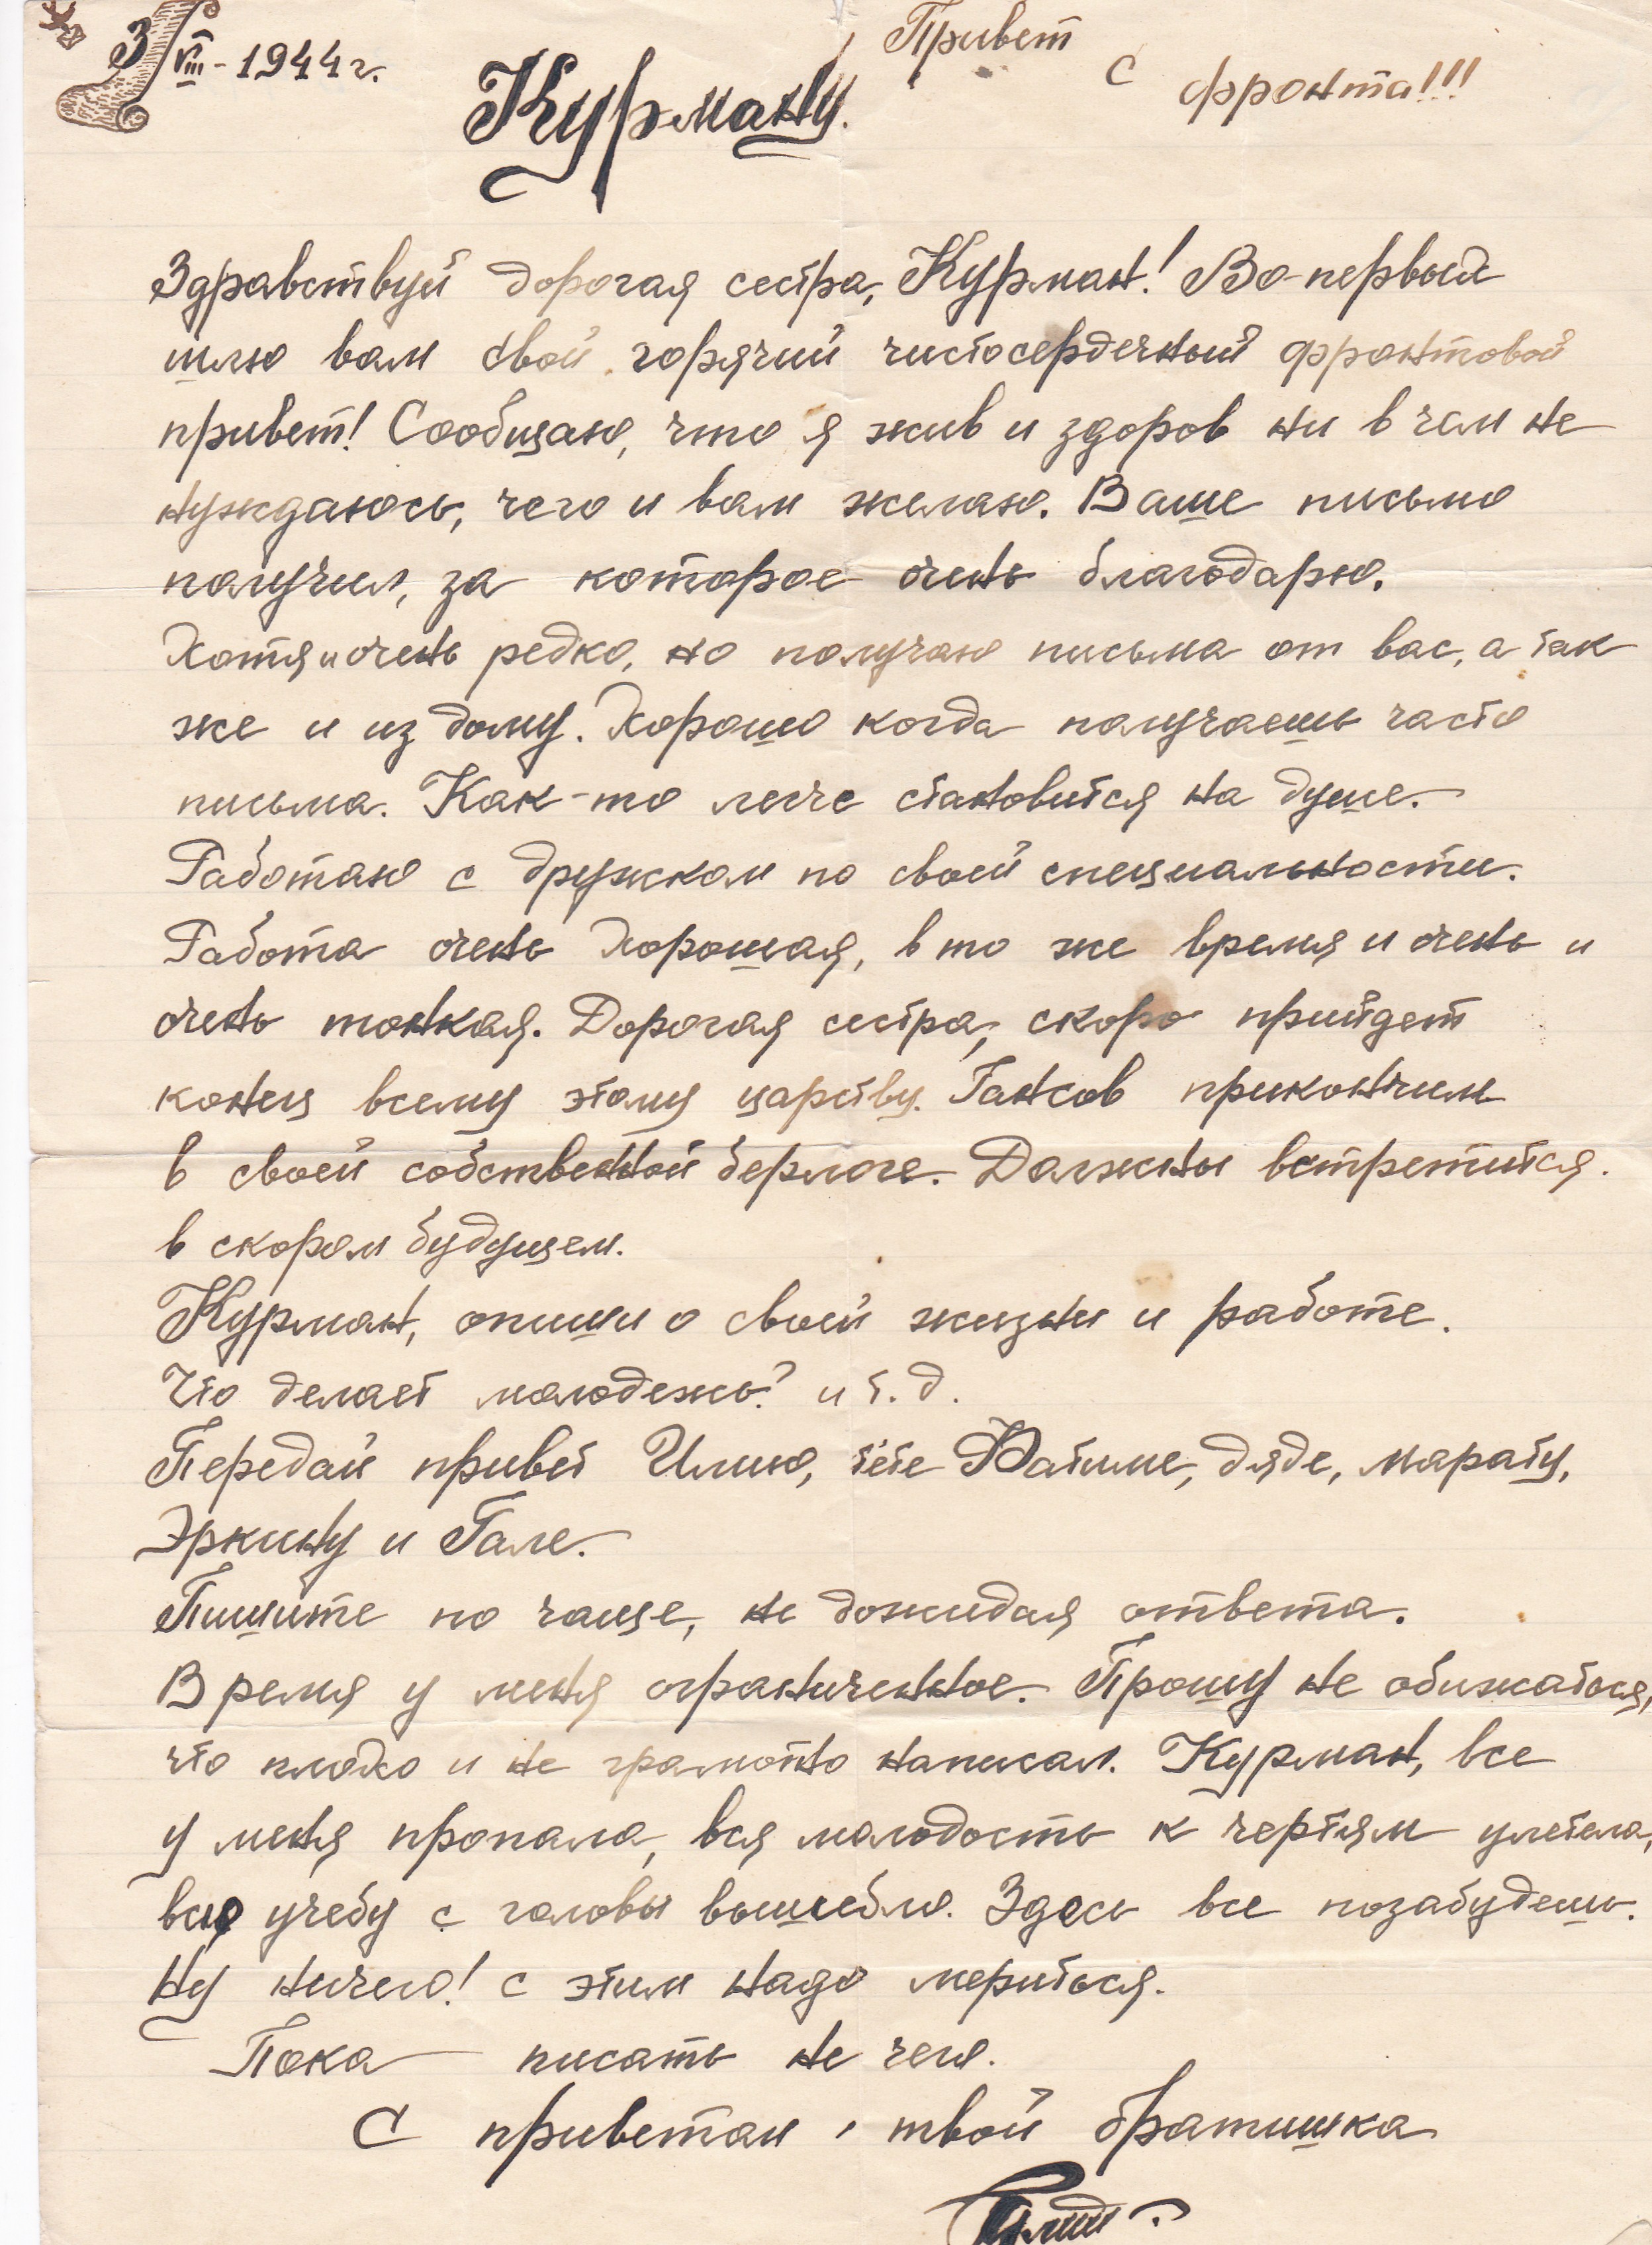 3/VIII-1944г.
Привет с фронта!!!
Курману.
Здравствуй дорогая сестра, Курман! Во-первый
шлю вам свой горячий чистосердечный фронтовой
привет! Сообщаю, что я жив и здоров ни в чем не
нуждаюсь, чего и вам желаю. Ваше письмо
получил, за которое очень благодарю.
Хотя и очень редко, но получаю письма от вас, а так
же и из дому. Хорошо когда получаешь часто
письма. Как-то легче становится на душе.
Работаю с дружком по своей специальности.
Работа очень хорошая, в то же время и очень и
очень тонкая. Дорогая сестра, скоро прийдет
конец всему этому царству. Гансов прикончим
в своей собственной берлоге. Должны встретится.
в скором будущем.
Курман, опиши о своей жизни и работе.
Что делает молодежь? и т.д.
Передай привет Илию, тёте Фатиме, дяде, марату,
Эркину и Гале.
Пишите по чаще, не дожидая ответа.
Время у меня ограниченное. Прошу не обижаться,
что плохо и не грамотно написал. Курман, все
у меня пропало, вся молодость к чертям улетела,
всю учебу с головы вышебло. Здесь все позабудешь.
Ну ничего! с этим надо мериться.
Пока писать не чего.
С приветом, твой братишка